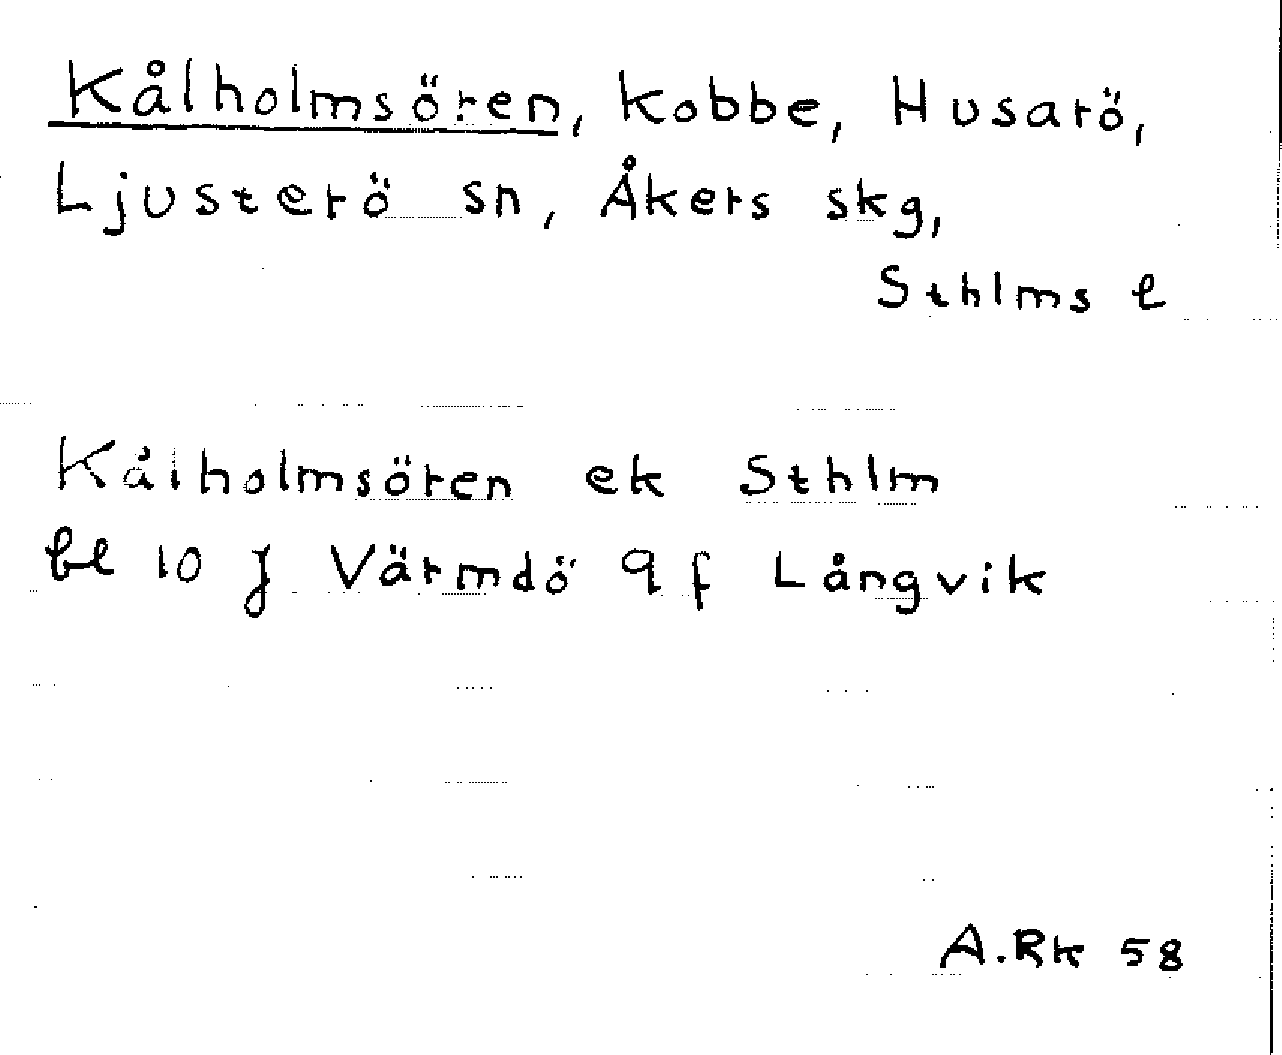 Kålholmsören, kobbe, Husarö,
Ljusterö sn, Åkers skg,
Sthlms l
Kålholmsören ek Sthlm
bl 10 J Värmdö 9 f Långvik
A.Rk 58